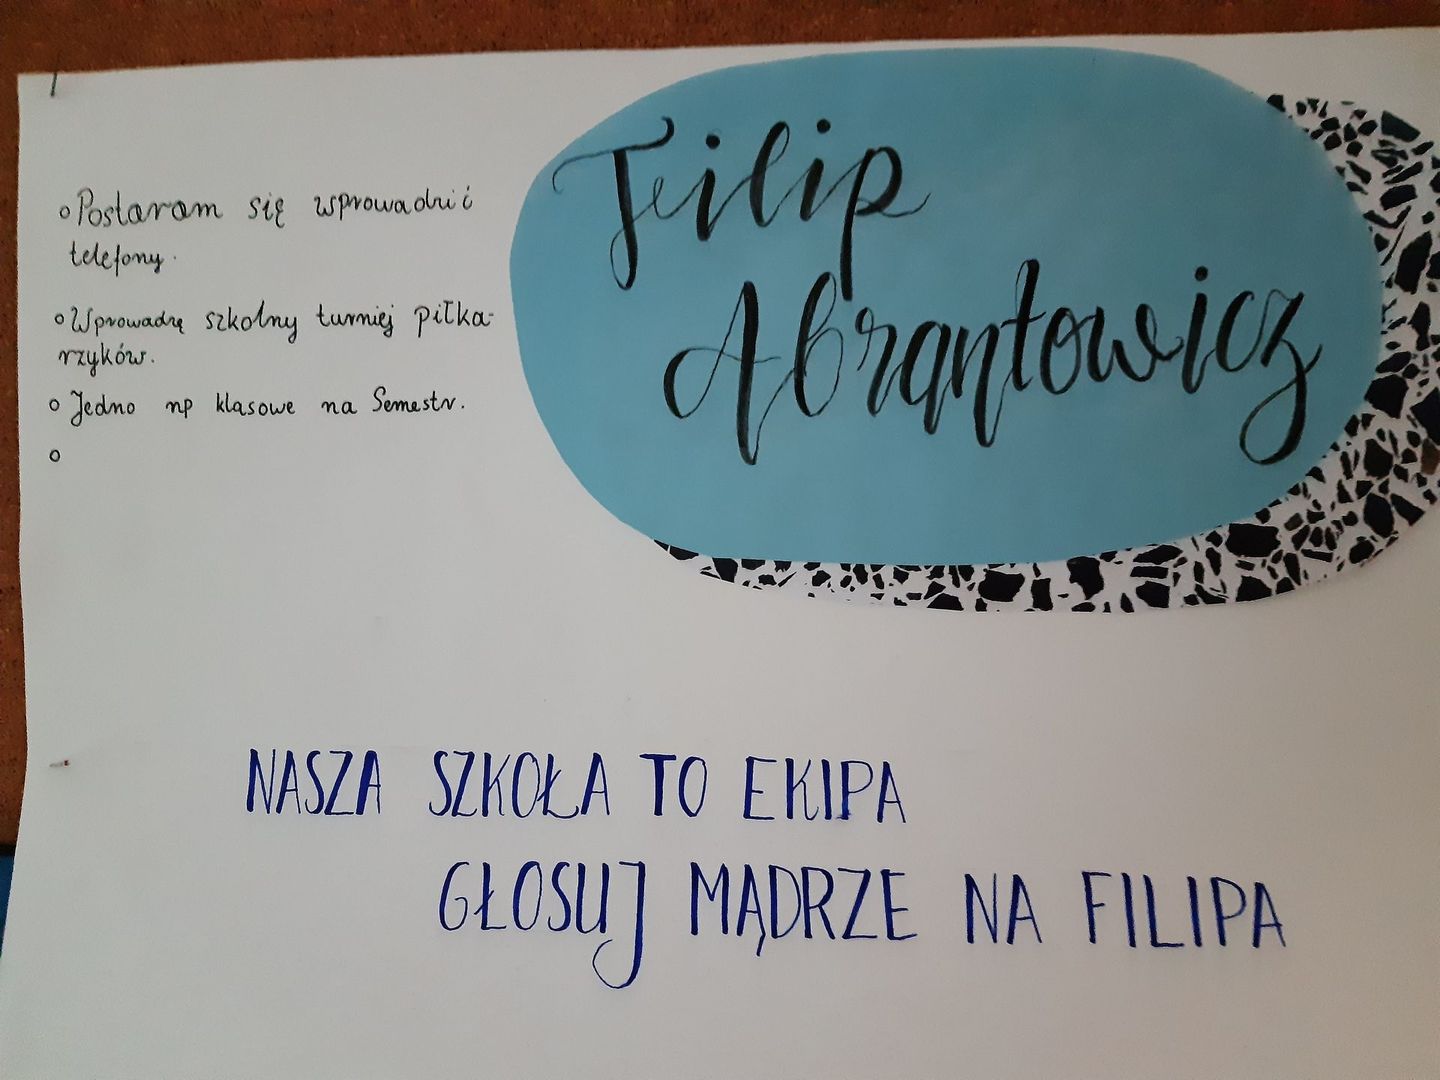 Filip
Abrantowicz
Postaram się wprowadzić
telefony.
Wprowadzę szkolny turniej piłka-
rzyków.
Jedno np klasowe na Semestr.
NASZA SZKOŁA TO EKIPA
GŁOSUJ MĄDRZE NA FILIPA